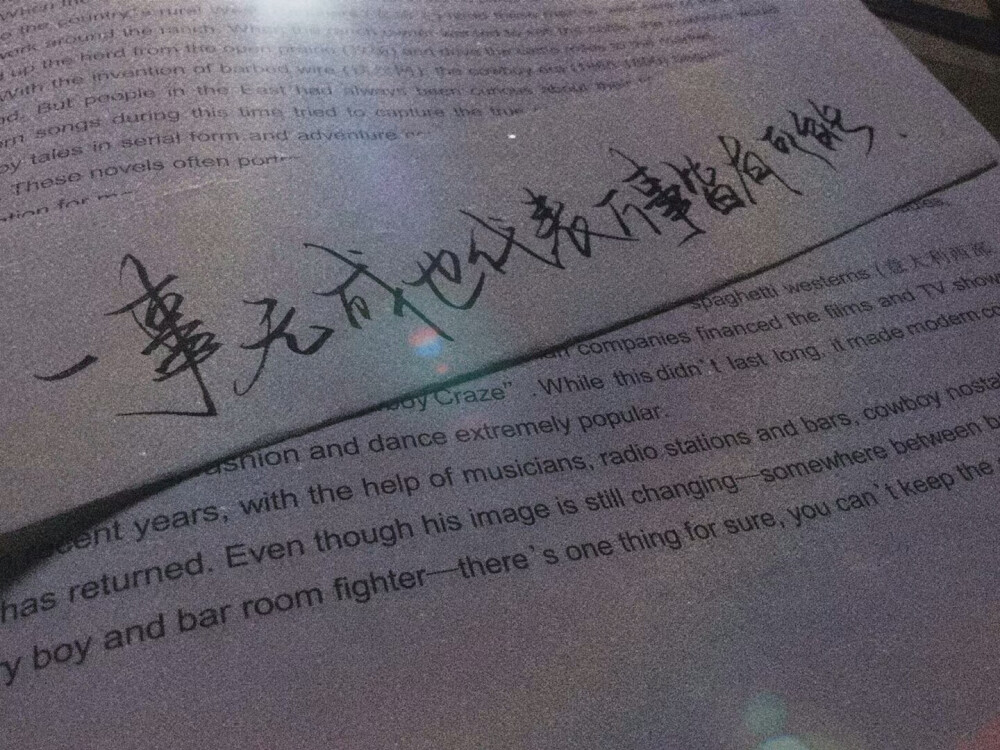 When the
the country's rural We
work around the ranch. When the ranch owner wanted to sell the
up the herd from the open prairie (大草原) and drive the
With the invention of barbed wire (铁丝网), the cowboy era
But people in the East had always been curious about the
songs during this time tried to capture the true
tales in serial form and adventure
These novels often
tion for
一事无成也代表万事皆有可能.
spaghetti westerns (意大利西部
companies financed the films and TV show
boy Craze". While this didn't last long, it made modern co
ashion and dance extremely popular.
ecent years, with the help of musicians, radio stations and bars, cowboy nosta
has returned. Even though his image is still changing—somewhere between b
y boy and bar room fighter—there's one thing for sure, you can't keep the